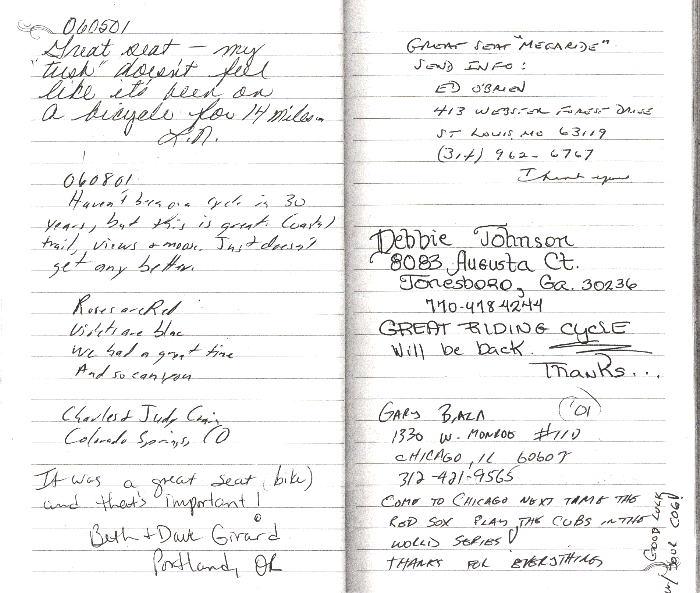 060501
Great seat - my
"tush" doesn't feel
like it's been on
a bicycle for 14 miles
L.N.
060801
Haven't been on a cycle in 30
years, but this is great. Coastal
trail, views + moose. Just doesn't
get any better.
Roses are Red
Violets are blue
We had a great time
And so can you
Charles & Judy
Colorado Springs, CO
It was a great seat (bike)
and that's important!
Beth + Dave Girard
Portland, OR
GREAT SEAT "MEGARIDE"
SEND INFO:
ED O'BRIEN
413 WEBSTER FOREST DRIVE
ST LOUIS, MO 63119
(314) 962-6767
Thank you
Debbie Johnson
8083 Augusta Ct.
Jonesboro, Ga. 30236
770-478-4244
GREAT RIDING CYCLE
Will be back.
Thanks...
GARY BAZA '01
1330 W. MONROE #110
CHICAGO, IL 60607
312-421-9565
COME TO CHICAGO NEXT TIME THE
RED SOX PLAY THE CUBS IN THE
WORLD SERIES!
THANKS FOR EVERYTHING
GOOD LUCK
w/ YOUR COG!